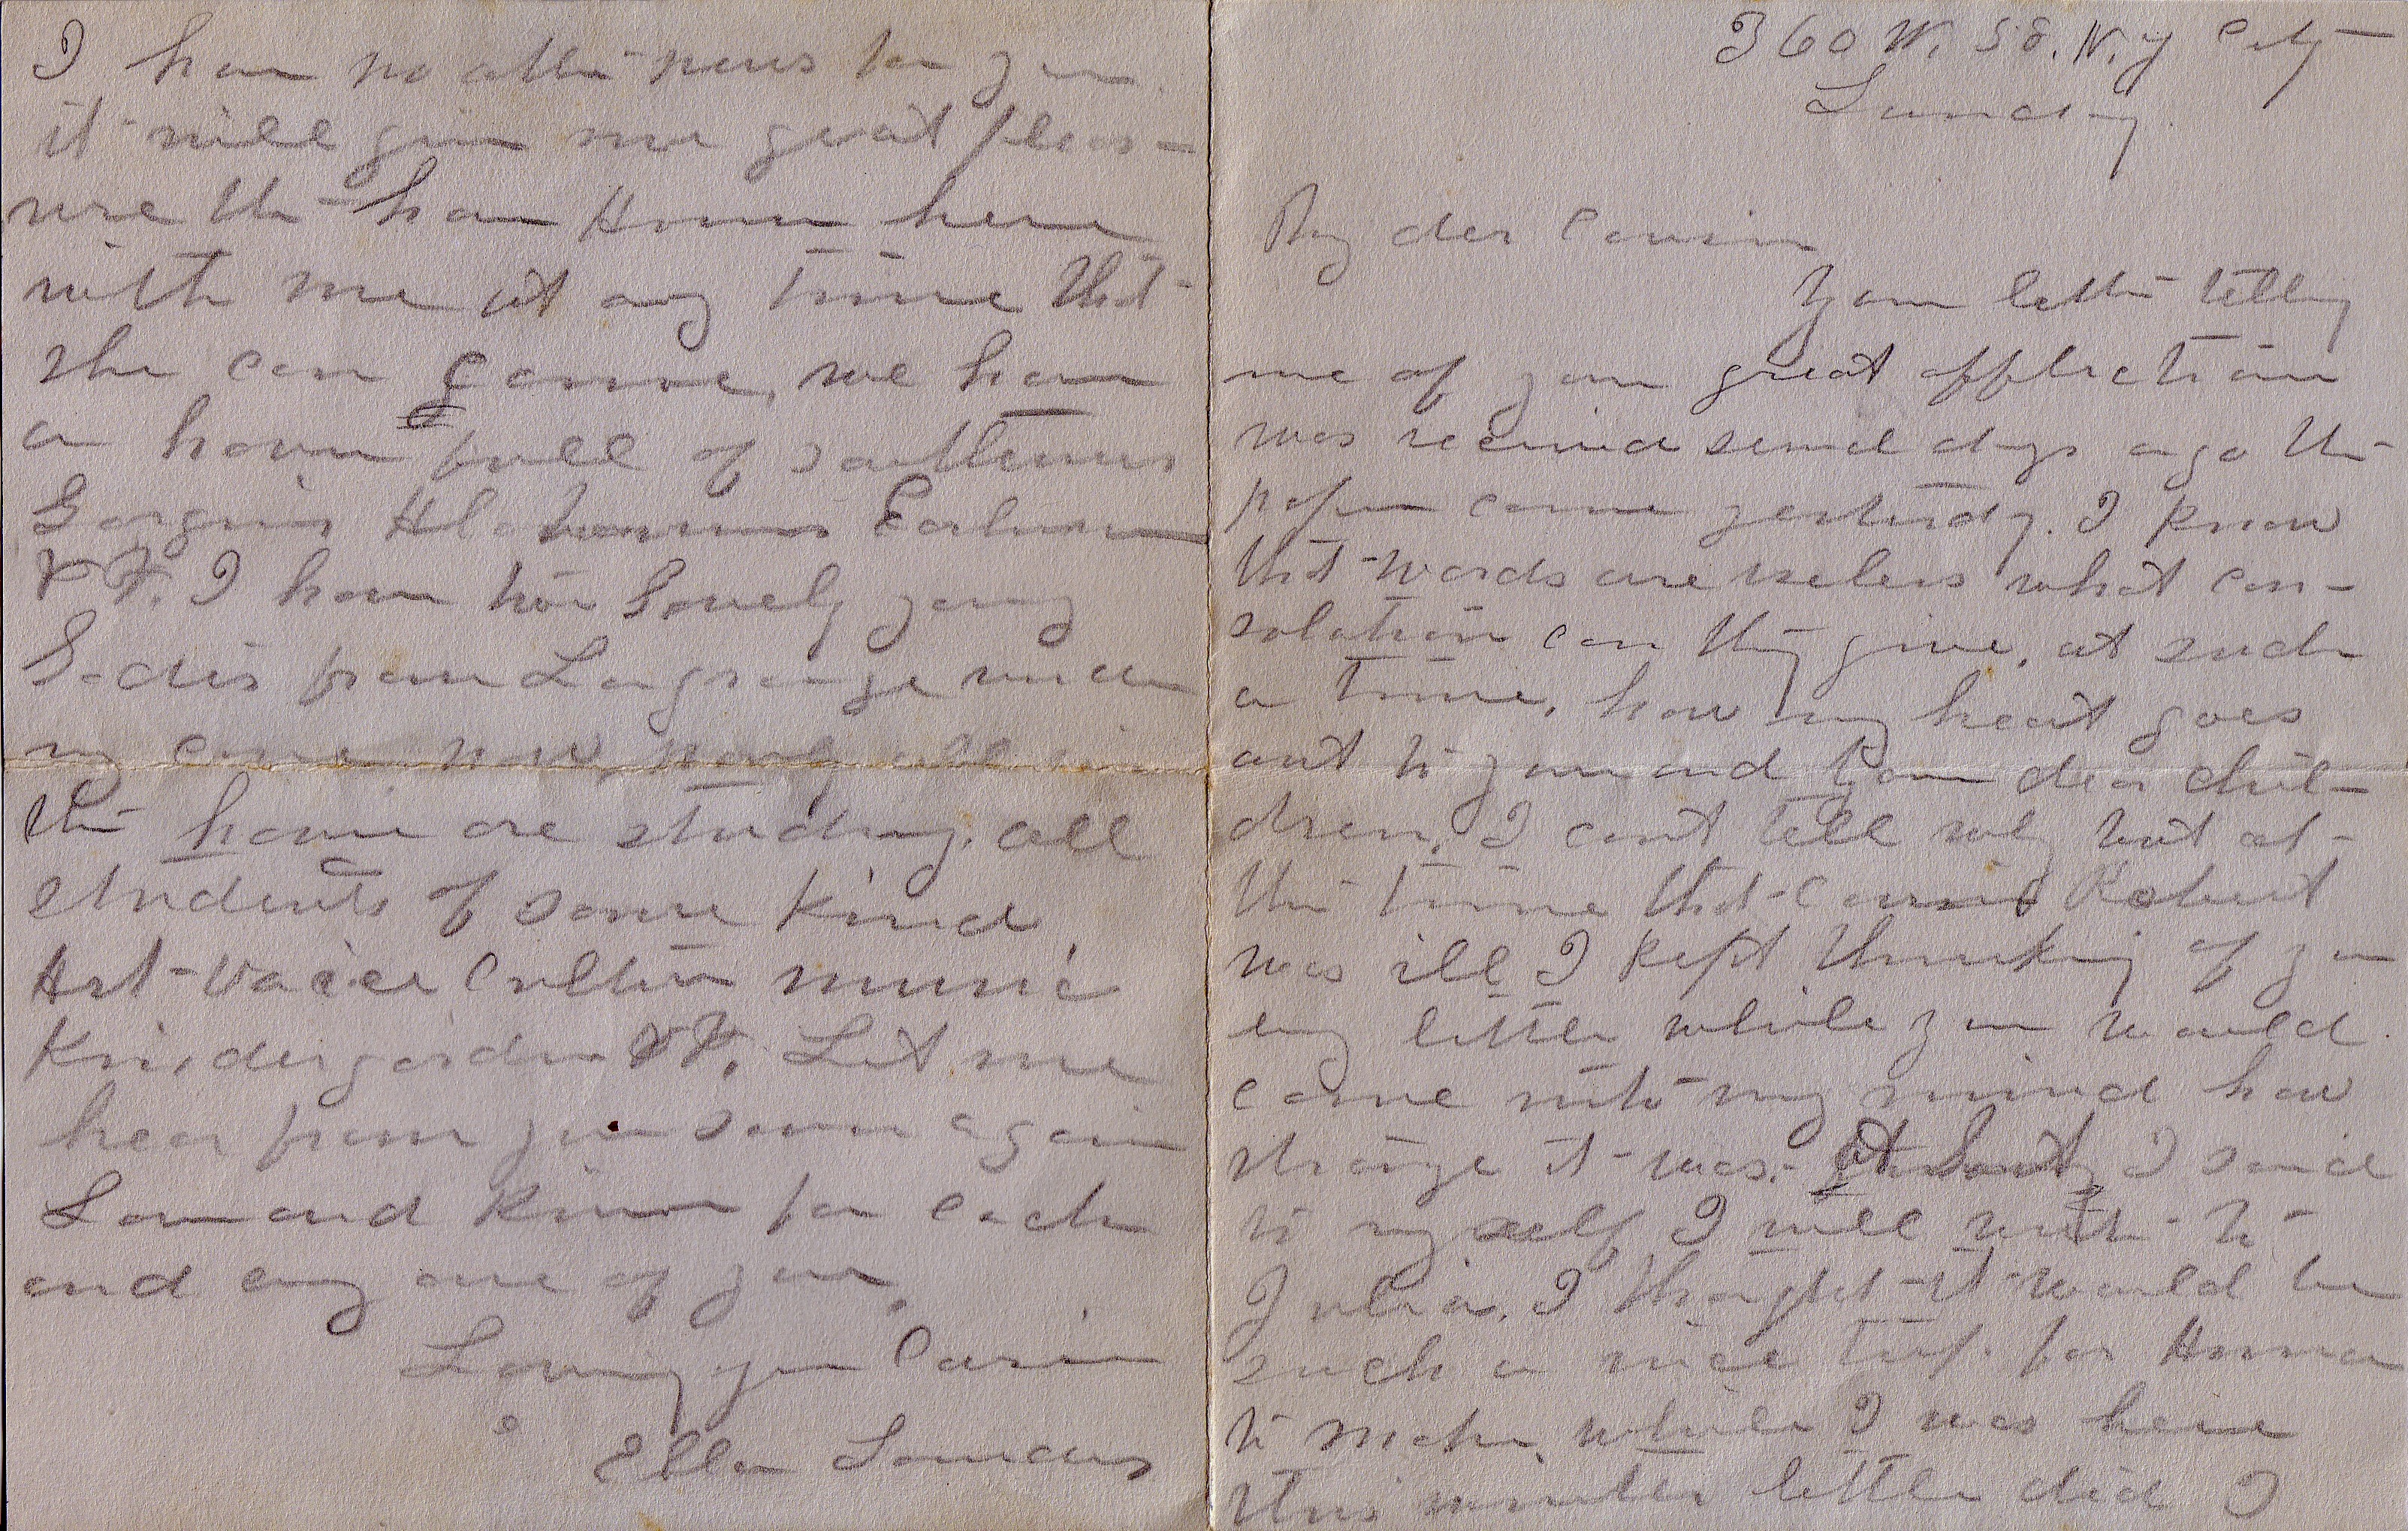 360 W. 58. N.y City
Sunday
My dear Cousin
Your letter telling
me of your great affliction
was received several days ago the
paper came yesterday. I know
that words are useless what con-
solation can they give, at such
a time, how my heart goes
out to you and your dear chil-
dren. I cant tell why but at
the time that Cousin Robert
was ill I kept thinking of you
every little while you would
come into my mind how
strange it was. I said
to my self I will write to
Julia. I thought it would be
such a nice trip for Anna
to make, while I was here
this winter little did I
I have no other news for you
it will give me great pleas-
ure to have Anna here
with me at any time that
she can come, we have
a house full of Southerners
Georgians Alabamians
&c. I have two lovely young
Ladies from Lagrange under
my care now, nearly all in
the house are studing, all
students of some kind,
Art Voice Culture music
Kindergarden &c. Let me
hear from you soon again
Love and Kisses for each
and every one of you,
Loving your Cousin
Ellen